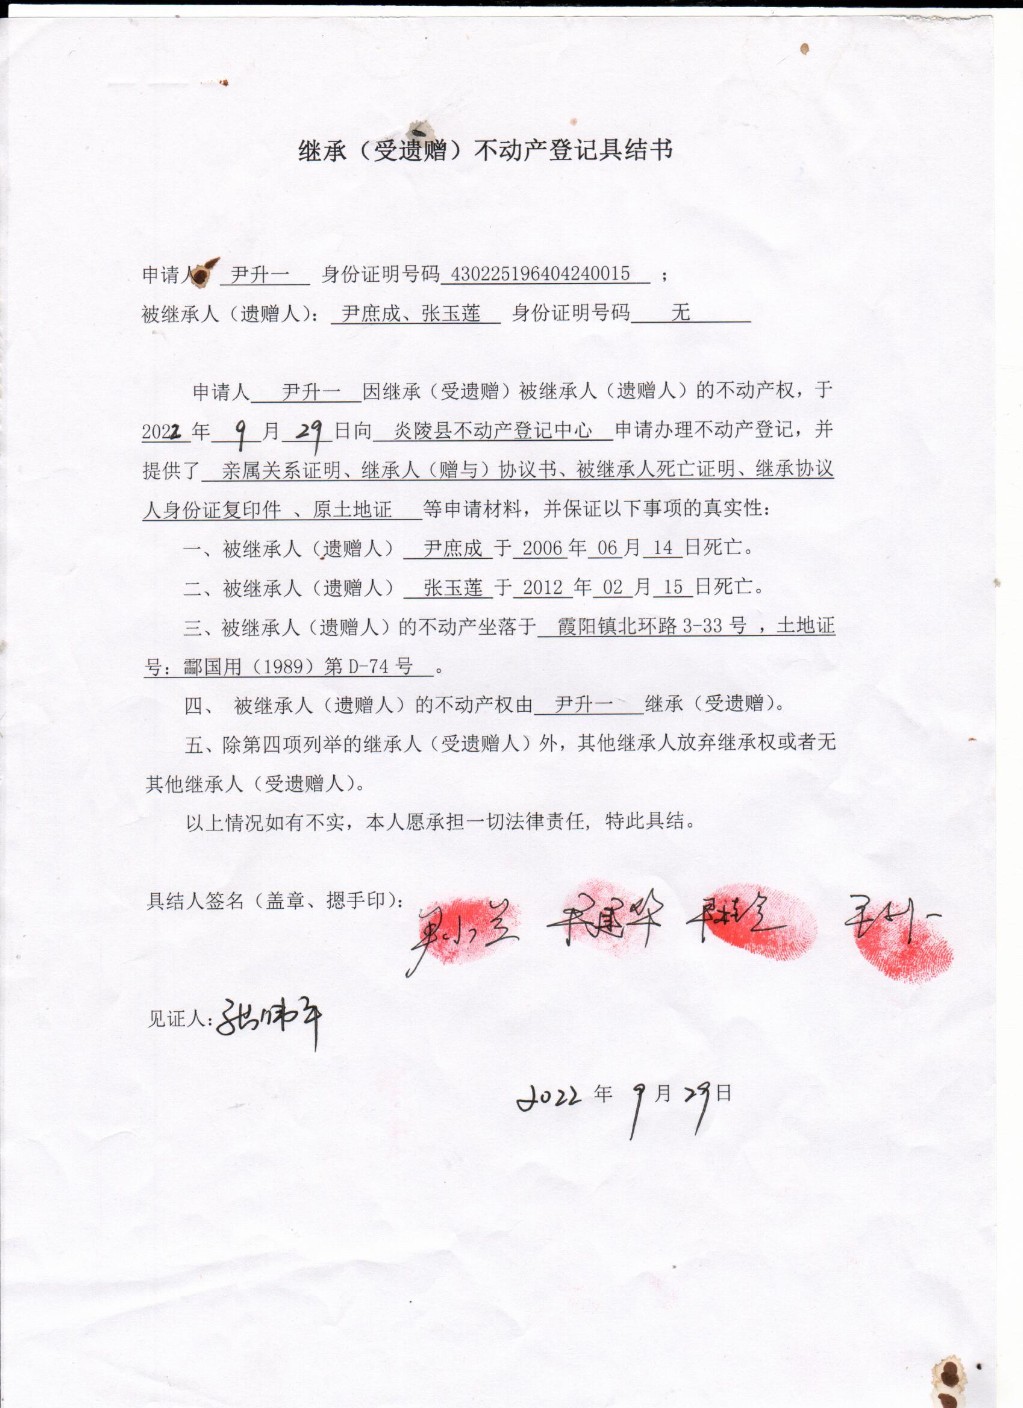 继承（受遗赠）不动产登记具结书
申请人 尹升一 身份证明号码 430225196404240015 ；
被继承人（遗赠人）： 尹庶成、张玉莲 身份证明号码 无
申请人 尹升一 因继承（受遗赠）被继承人（遗赠人）的不动产权，于
2022 年 9 月 29 日向 炎陵县不动产登记中心 申请办理不动产登记，并
提供了 亲属关系证明、继承人（赠与）协议书、被继承人死亡证明、继承协议
人身份证复印件 、原土地证 等申请材料，并保证以下事项的真实性：
一、被继承人（遗赠人） 尹庶成 于 2006 年 06 月 14 日死亡。
二、被继承人（遗赠人） 张玉莲 于 2012 年 02 月 15 日死亡。
三、被继承人（遗赠人）的不动产坐落于 霞阳镇北环路 3-33 号 ，土地证
号：酃国用（1989）第 D-74 号 。
四、 被继承人（遗赠人）的不动产权由 尹升一 继承（受遗赠）。
五、除第四项列举的继承人（受遗赠人）外，其他继承人放弃继承权或者无
其他继承人（受遗赠人）。
以上情况如有不实，本人愿承担一切法律责任, 特此具结。
具结人签名（盖章、摁手印）： 尹小兰 尹建华 尹桂会 尹升一
见证人：张
2022 年 9 月 29 日